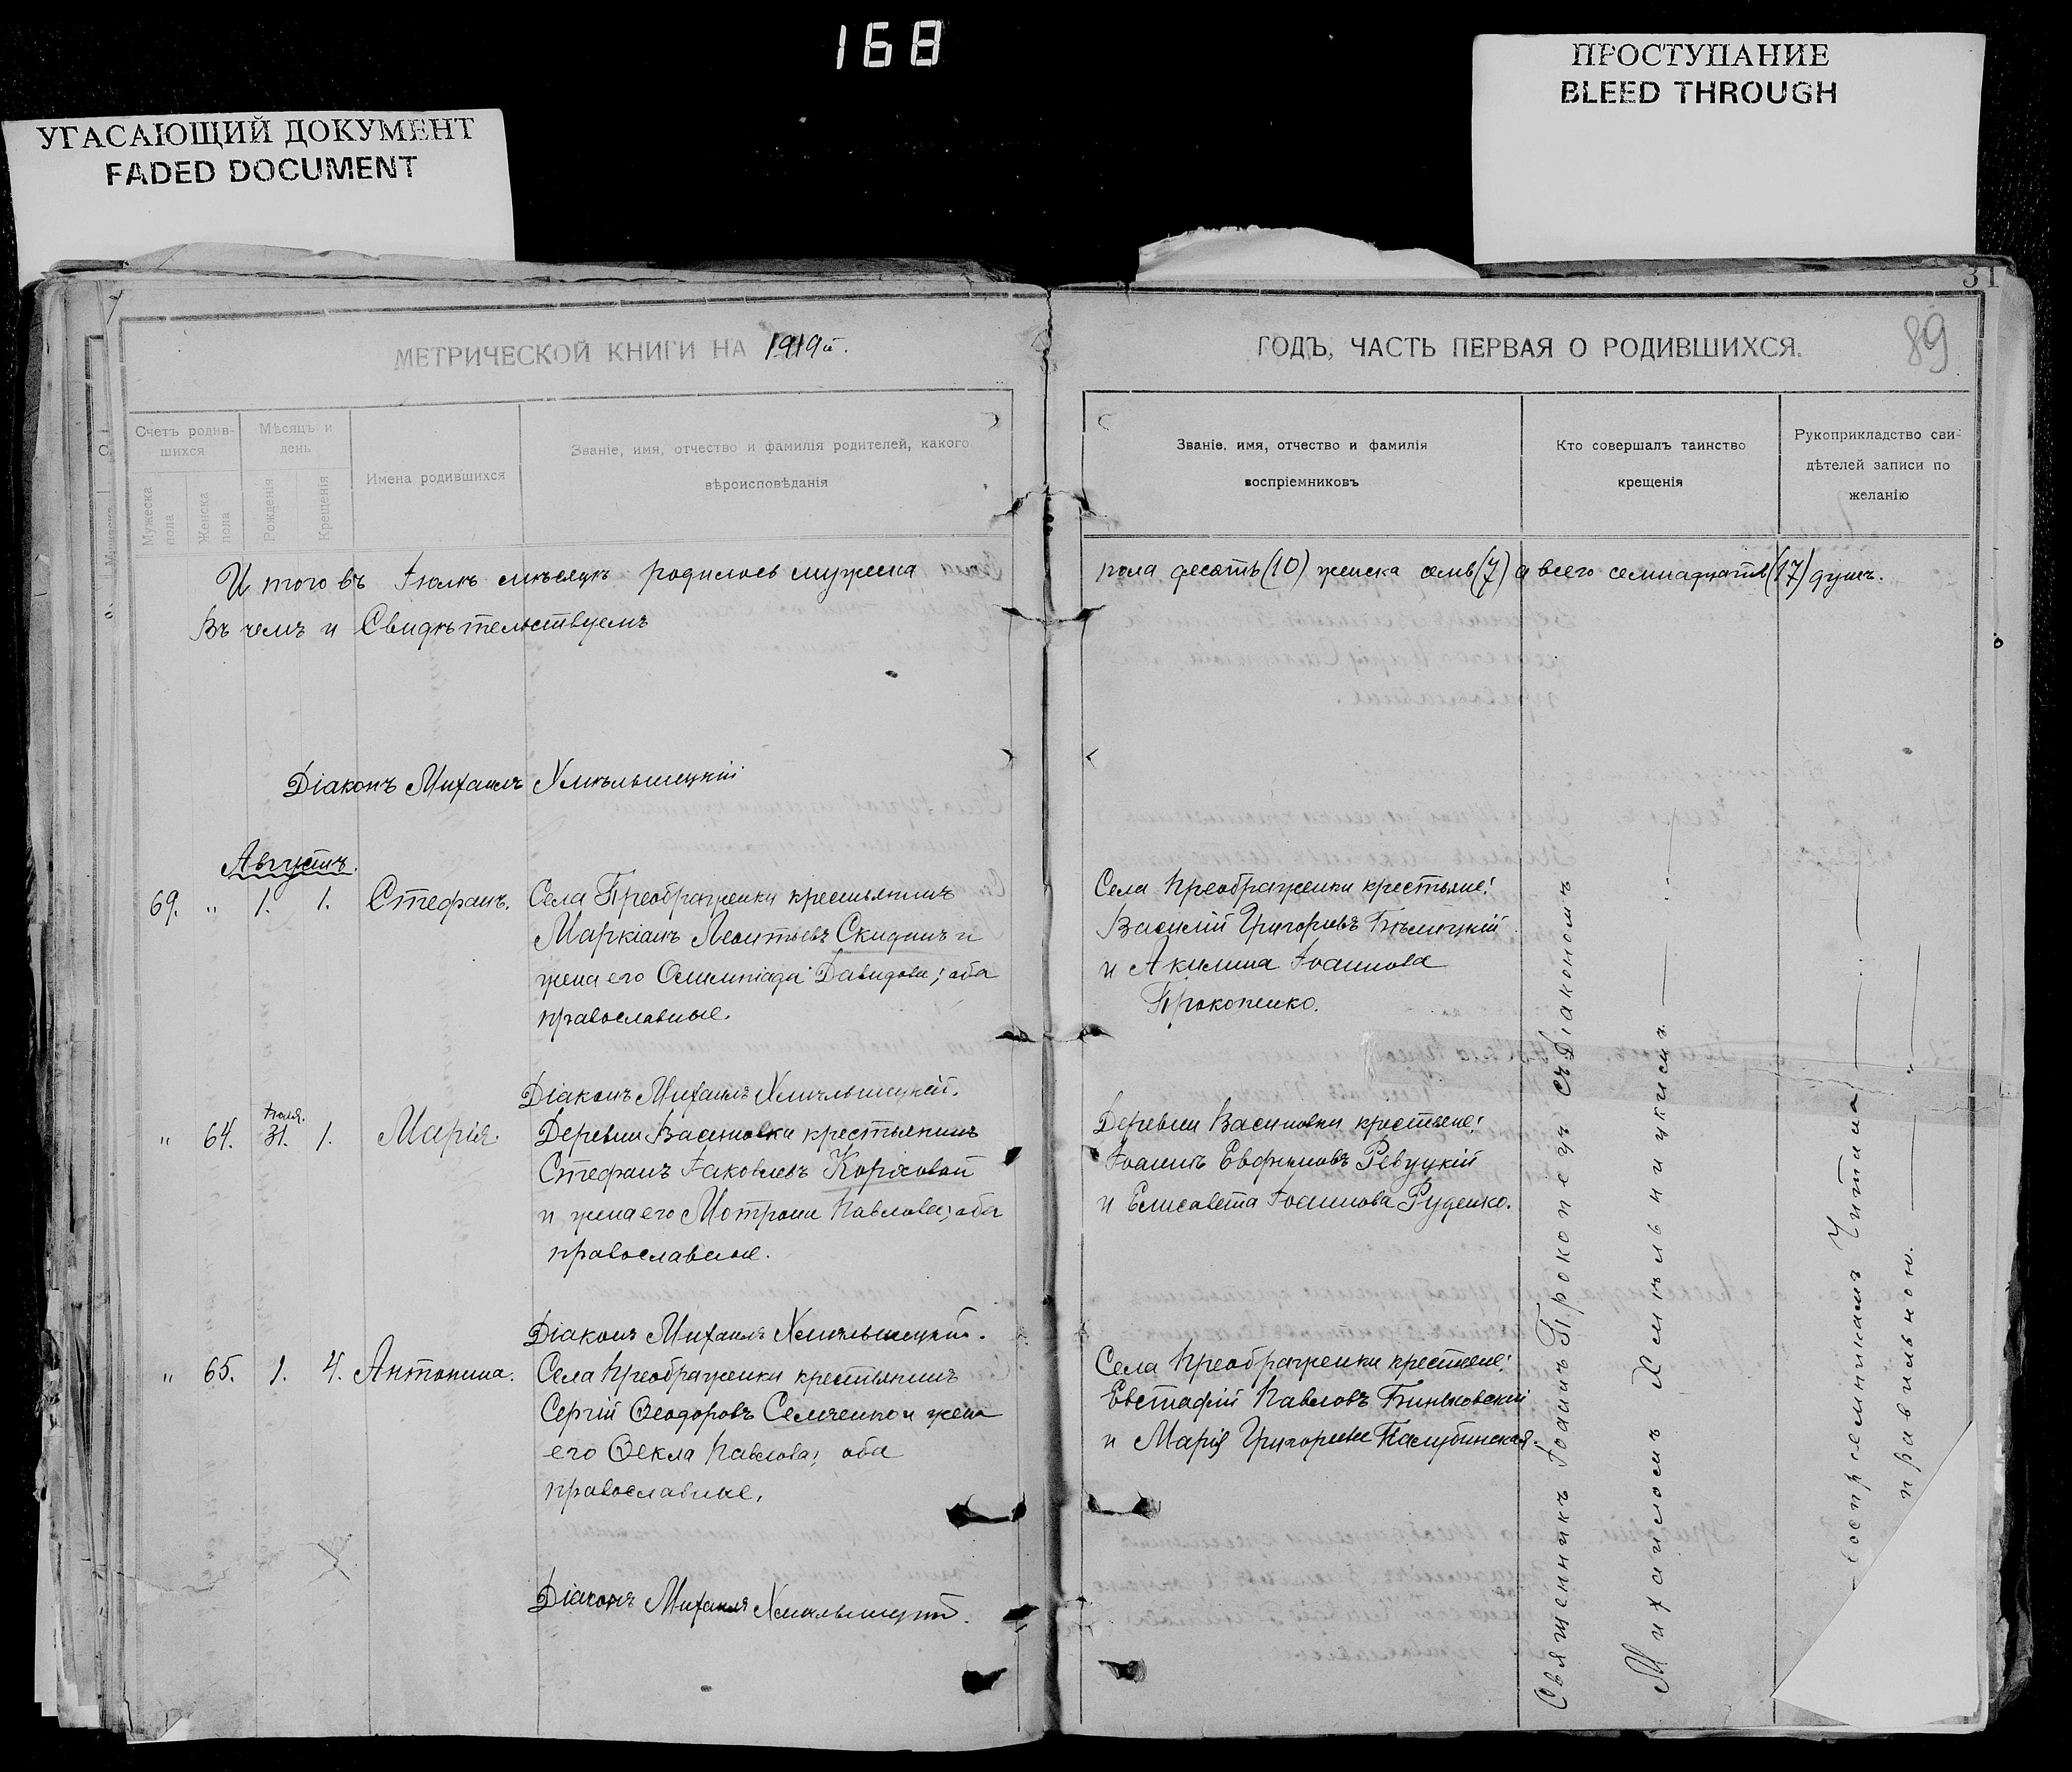 168
УГАСАЮЩИЙ ДОКУМЕНТ
FADED DOCUMENT
ПРОСТУПАНИЕ
BLEED THROUGH
31
89
МЕТРИЧЕСКОЙ КНИГИ НА 1919й.
Счетъ родив-
шихся
Мѣсяцъ и
день
Мужеска
пола
Женска
пола
Рожденія
Крещенія
Имена родившихся
Званіе, имя, отчество и фамилія родителей, какого
вѣроисповѣданія
Итого въ Іюлѣ мѣсяцѣ родилось мужеска
Въ чемъ и Свидѣтельствуемъ
Діаконъ Михаилъ Хмѣльницкій
Августъ.
69. " 1. 1. Стефанъ. Села Преображенки крестьянинъ
Маркіанъ Леонтьевъ Скиданъ и
жена его Олимпіада Давидова; оба
православные.
Діаконъ Михаилъ Хмѣльницкій.
" 64. Іюля. 31. 1. Марія. Деревни Васиновки крестьянинъ
Стефанъ Іаковлевъ
и жена его Мотрона Павлова; оба
православные.
Діаконъ Михаилъ Хмѣльницкій.
" 65. 1. 4. Антонина. Села Преображенки крестьянинъ
Сергій Ѳеодоровъ Семченко и жена
его Ѳекла Павлова; оба
православные.
Діаконъ Михаилъ Хмѣльницкій.
ГОДЪ, ЧАСТЬ ПЕРВАЯ О РОДИВШИХСЯ.
Званіе, имя, отчество и фамилія
воспріемниковъ
Кто совершалъ таинство
крещенія
Рукоприкладство сви-
дѣтелей записи по
желанію
пола десять (10) женска семь (7) а всего семнадцать (17) душъ.
Села Преображенки крестьяне:
Василій Григорьевъ Бѣлицкій
и Акилина Іоаннова
Прокопенко.
Деревни Васиновки крестьяне:
Іоаннъ Евфимовъ Ревуцкій
и Елисавета Іоаннова Руденко.
Села Преображенки крестьяне:
Евстафій Павловъ Биньковскій
и Марія Григорьева
Священникъ Іоаннъ Прокопецъ съ Діакономъ
Михаиломъ Хмѣльницкимъ
воспріемникамъ Читана
правильно.